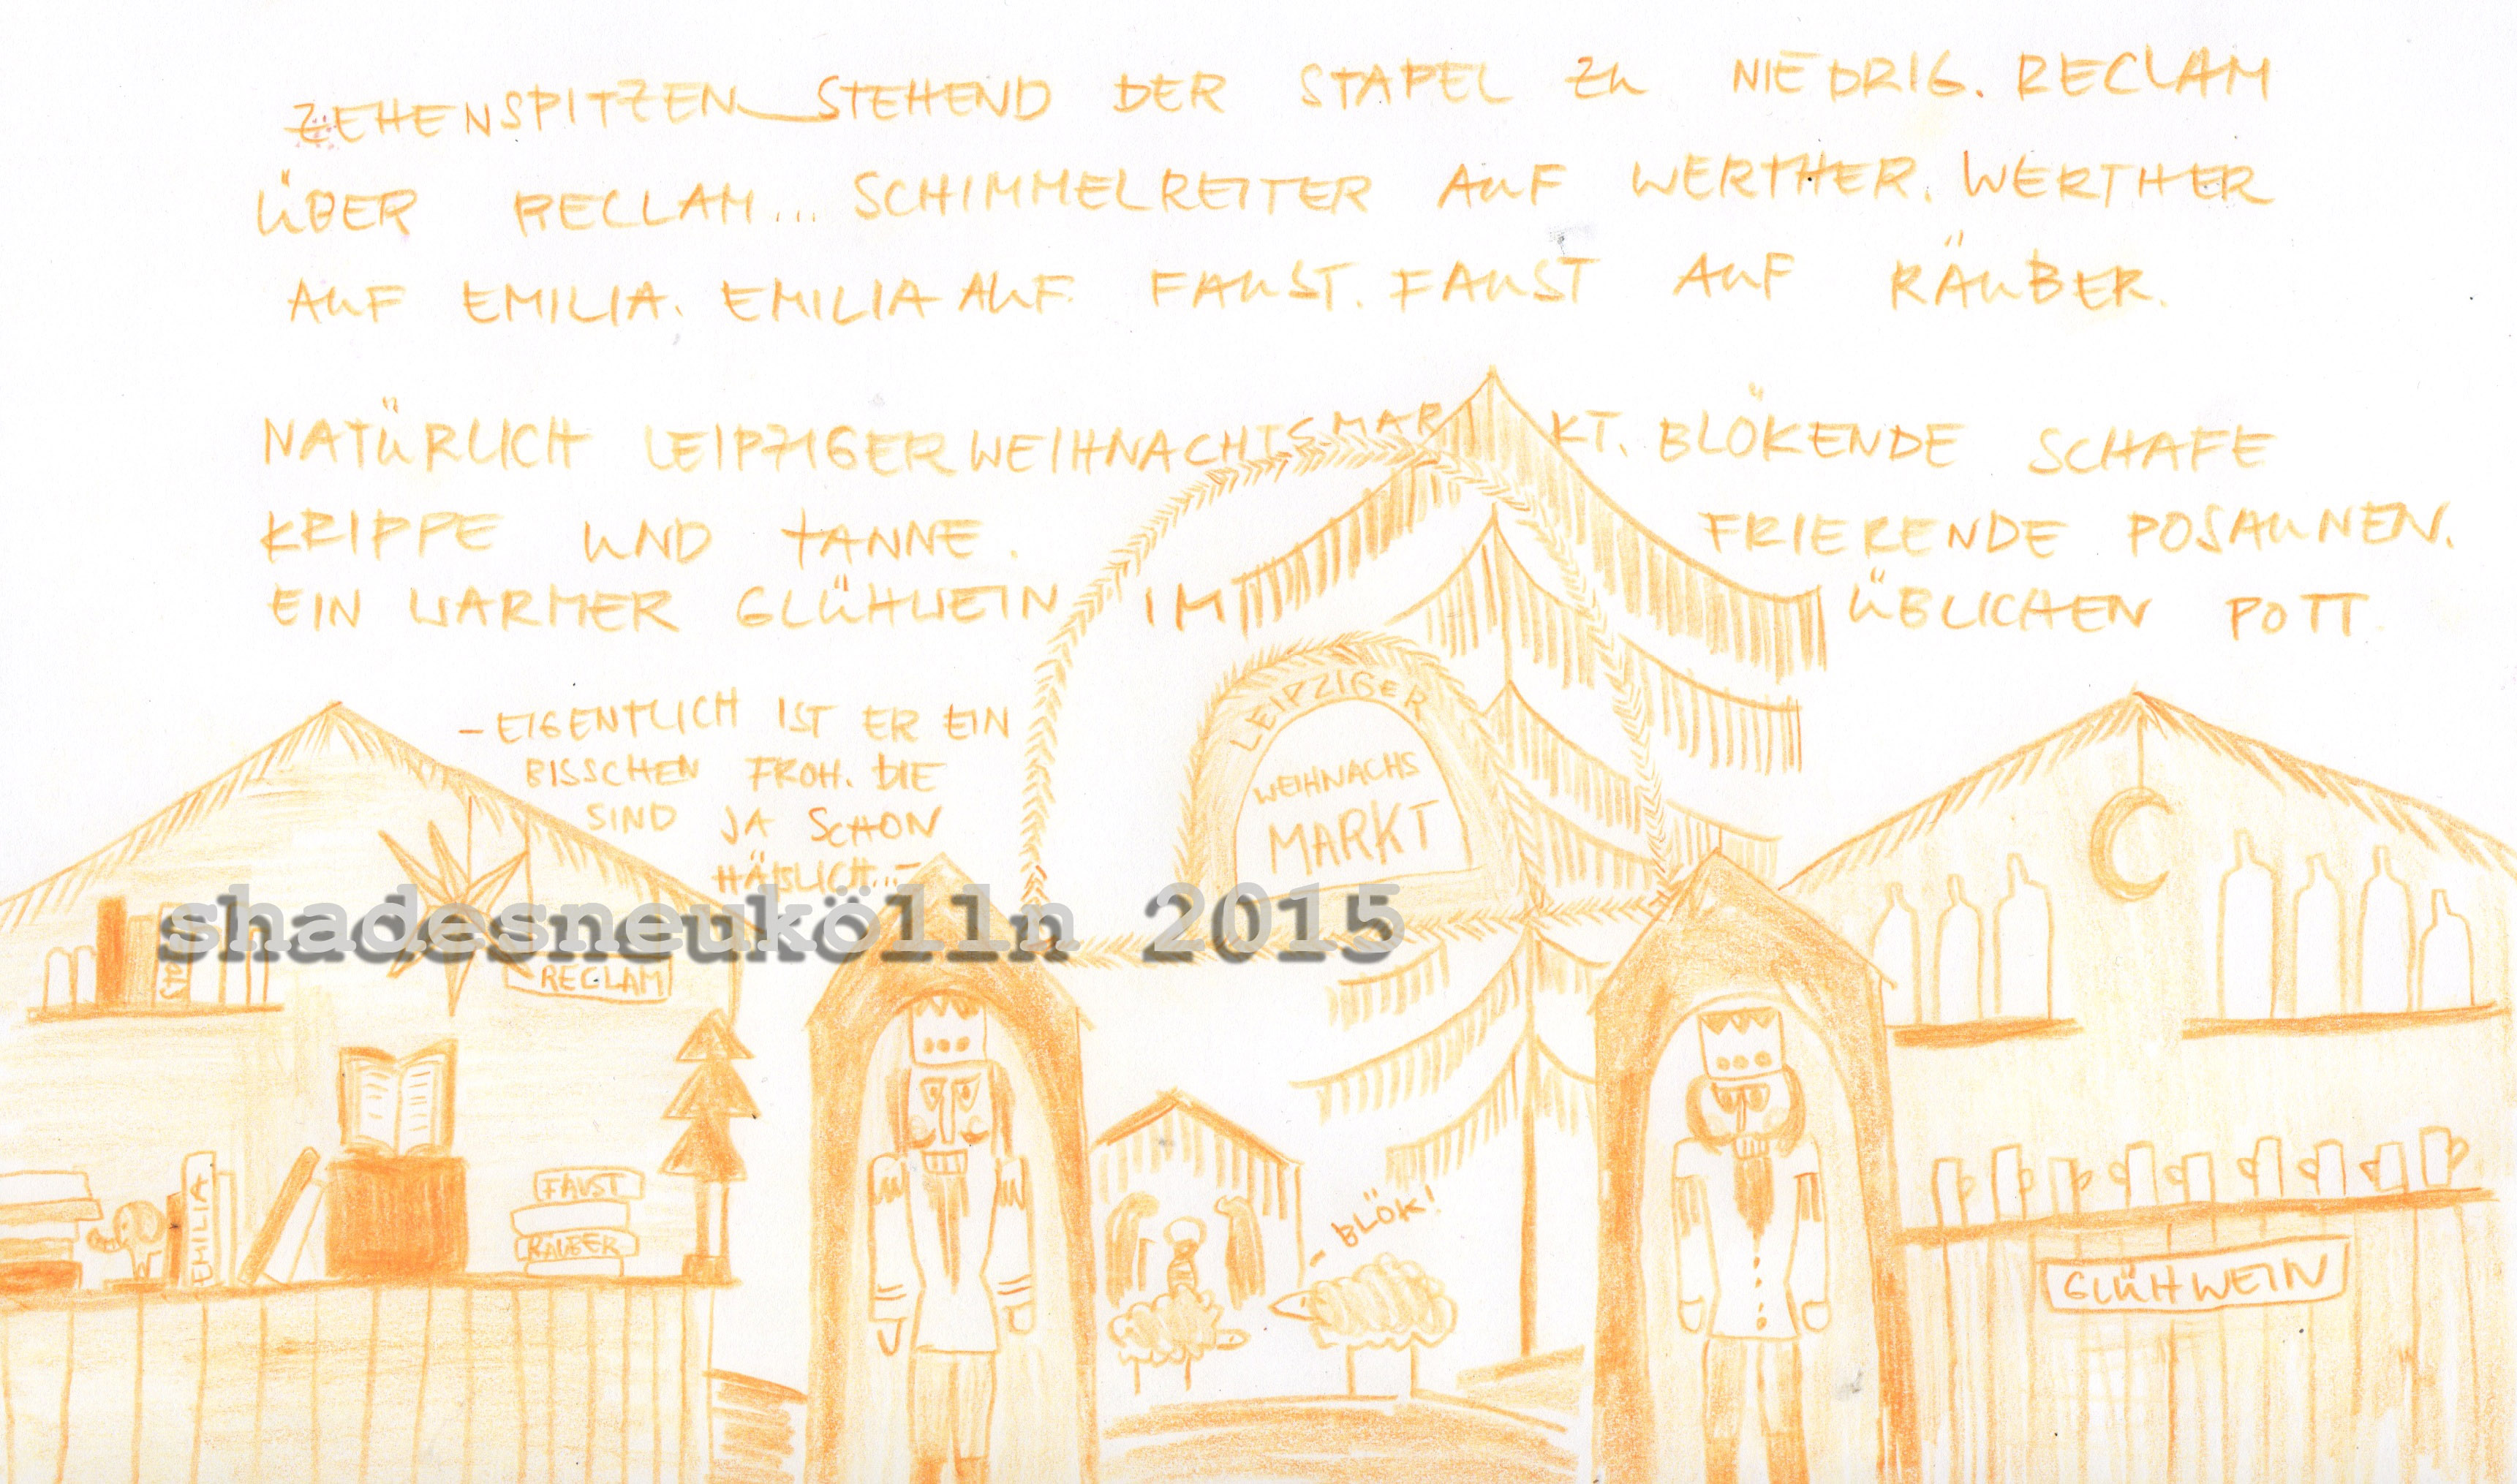 ZEHENSPITZEN STEHEND DER STAPEL ZU NIEDRIG. RECLAM
ÜBER RECLAM... SCHIMMELREITER AUF WERTHER. WERTHER
AUF EMILIA. EMILIA AUF FAUST. FAUST AUF RÄUBER.
NATÜRLICH LEIPZIGER WEIHNACHTSMARKT. BLÖKENDE SCHAFE
KRIPPE UND TANNE. FRIERENDE POSAUNEN.
EIN WARMER GLÜHWEIN IM ÜBLICHEN POTT
- EIGENTLICH IST ER EIN
BISSCHEN FROH. DIE
SIND JA SCHON
HÄßLICH...-
LEIPZIGER
WEIHNACHS
MARKT
shadesneukölln 2015
RECLAM
EMILIA
FAUST
RÄUBER
- BLÖK!
GLÜHWEIN